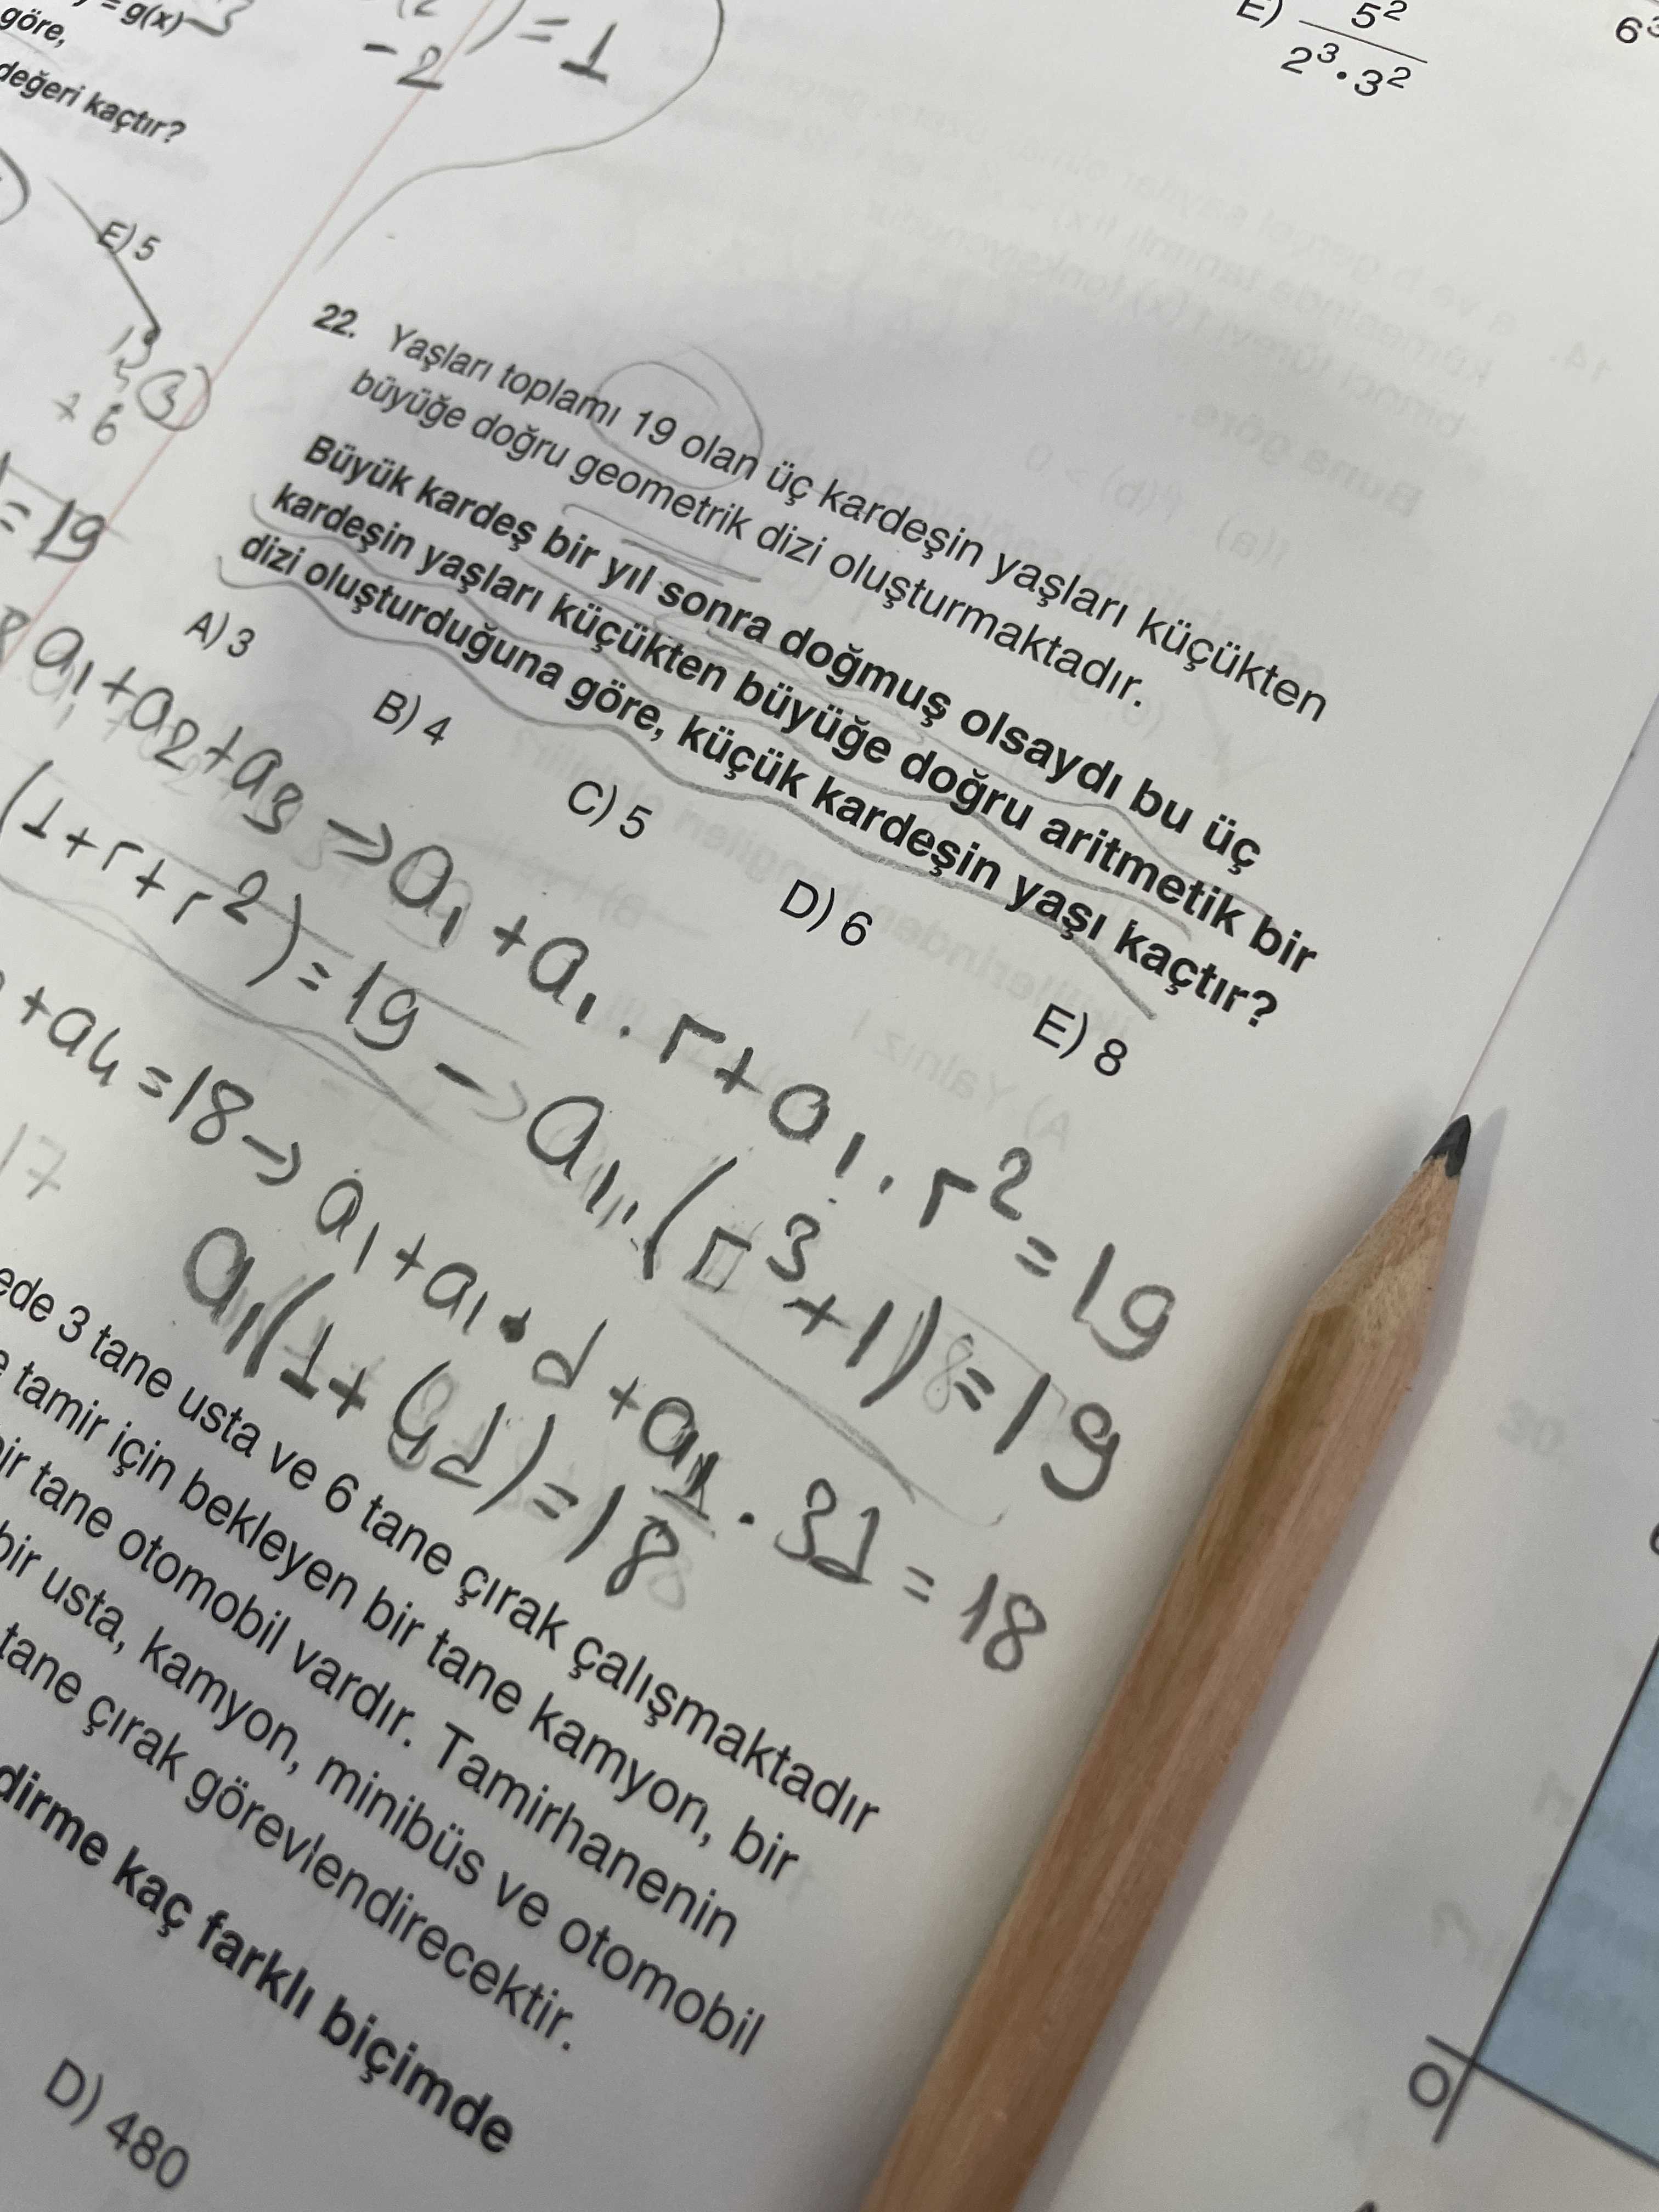 = g(x)
göre,
değeri kaçtır?
E) 5
-2 ) = 1
E) 5² / 2³·3²
6³
13
+ 6
3
= 19
22. Yaşları toplamı 19 olan üç kardeşin yaşları küçükten
büyüğe doğru geometrik dizi oluşturmaktadır.
Büyük kardeş bir yıl sonra doğmuş olsaydı bu üç
kardeşin yaşları küçükten büyüğe doğru aritmetik bir
dizi oluşturduğuna göre, küçük kardeşin yaşı kaçtır?
A) 3
B) 4
C) 5
D) 6
E) 8
a₁+a₂+a₃ → a₁ + a₁ . r + a₁ . r² = 19
(1+r+r²) = 19 → a₁ . (r³+1) = 19
+a₄ = 18 → a₁ + a₁ • d + a₁ . 3d = 18
a₁(1+4d) = 18
17
3 tane usta ve 6 tane çırak çalışmaktadır
tamir için bekleyen bir tane kamyon, bir
tane otomobil vardır. Tamirhanenin
bir usta, kamyon, minibüs ve otomobil
tane çırak görevlendirecektir.
kaç farklı biçimde
D) 480
O